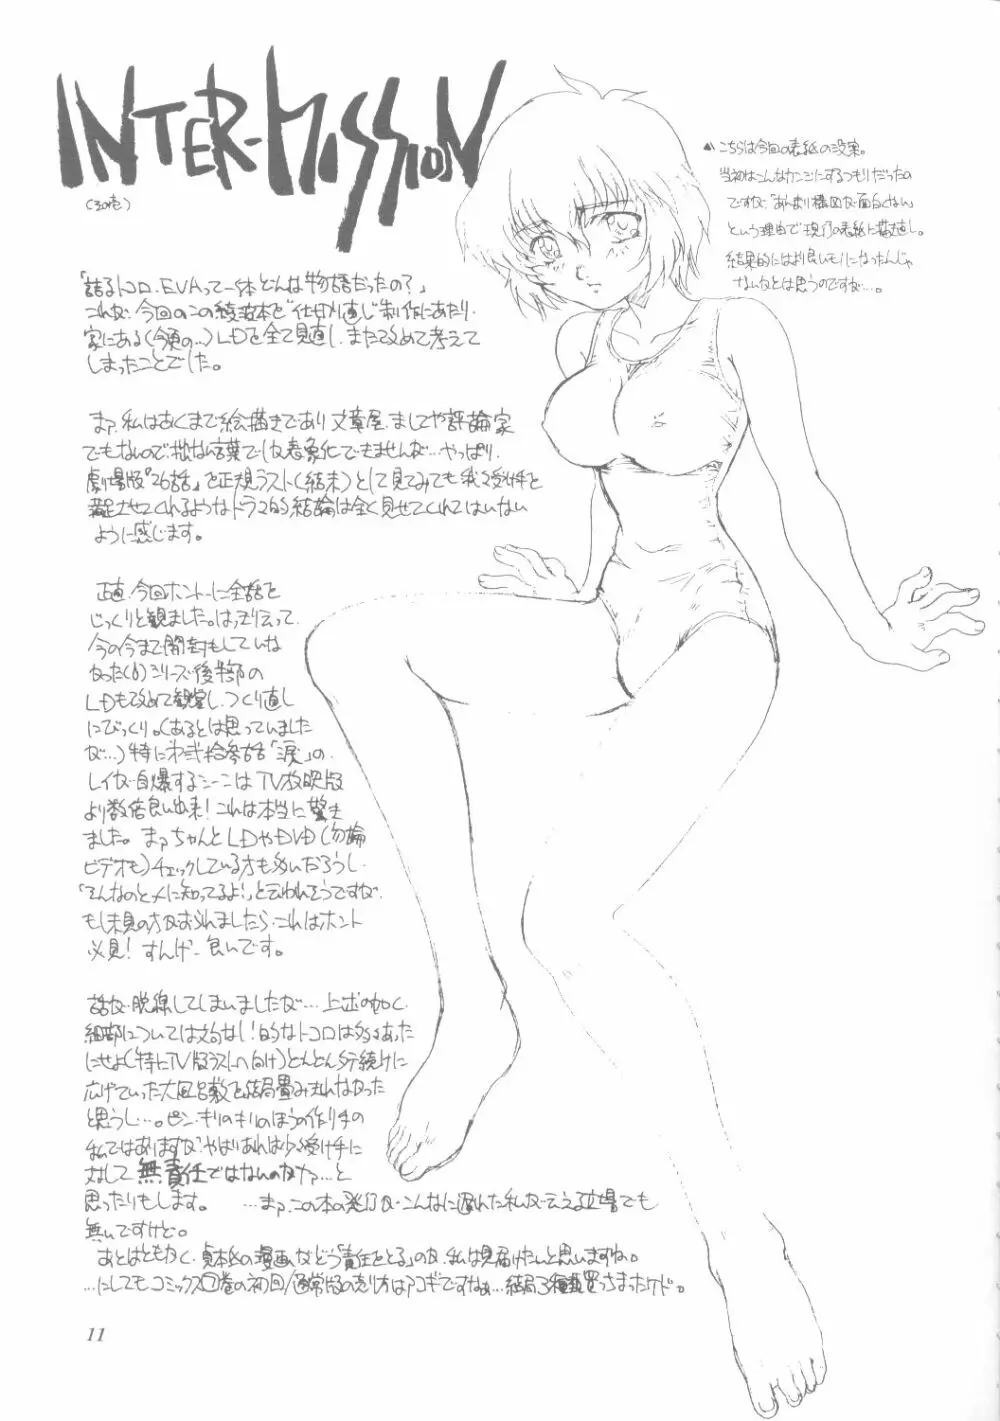 INTER-MISSION
(その壱)
▲こちらは今回の表紙の没案。
当初はこんなカンジにするつもりだったの
ですが、「あんまり構図が面白くない」
という理由で現行の表紙に描き直し。
結果的にはより良いモノになったんじゃ
ないかなとは思うのですが…。
「詰るトコロ、EVAって一体どんな物語だったの?」
これが、今回のこの綾波本を"仕切り直し"制作にあたり、
家にある(今頃の…)LDを全て見直し、また改めて考えて
しまったことでした。
まァ、私はあくまで絵描きであり文章屋、ましてや評論家
でもないので、拙ない言葉でしか表象化できませんが…やっぱり、
劇場版『26話』を正規ラスト(結末)として見てみても我々受け手を
満足させてくれるようなドラマ的結論は全く見せてくれてはいない
ように感じます。
正直、今回ホントーに全話を
じっくりと観ました。はっきり云って、
今の今まで開封もしていな
かった(!)シリーズ後半部の
LDも改めて観賞し、つくり直し
にびっくり。(あるとは思っていました
が…)特に第弐拾参話「涙」の
レイが自爆するシーンはTV放映版
より数倍良い出来!これは本当に驚き
ました。まァちゃんとLDやDVD(勿論
ビデオも)チェックしている方も多いだろうし、
「そんなのとっくに知ってるよ!」と云われそうですが、
もし未見の方がおられましたら、これはホント
必見!すんげー良いです。
話が脱線してしまいましたが…上述の如く、
細部については文句なし!的なトコロは多々あった
にせよ(特にTV版ラストへ向け)どんどん広げ続けに
広げていった大風呂敷を結局畳みきれなかった
と思うし…。ピン・キリのキリのほうの作り手の
私ではありますが、やはりあれは少々受け手に
対して無責任ではないのかァ…と
思ったりもします。 …まァ、この本の発行が、こんなに遅れた私が言える立場でも
無いですけど。
あとはともかく、貞本氏の漫画がどう「責任をとる」のか、私は見届けたいと思いますね。
…にしてもコミックス 巻の初回/通常版の売り方はアコギですなぁ…結局3種買っちまったケド。
11